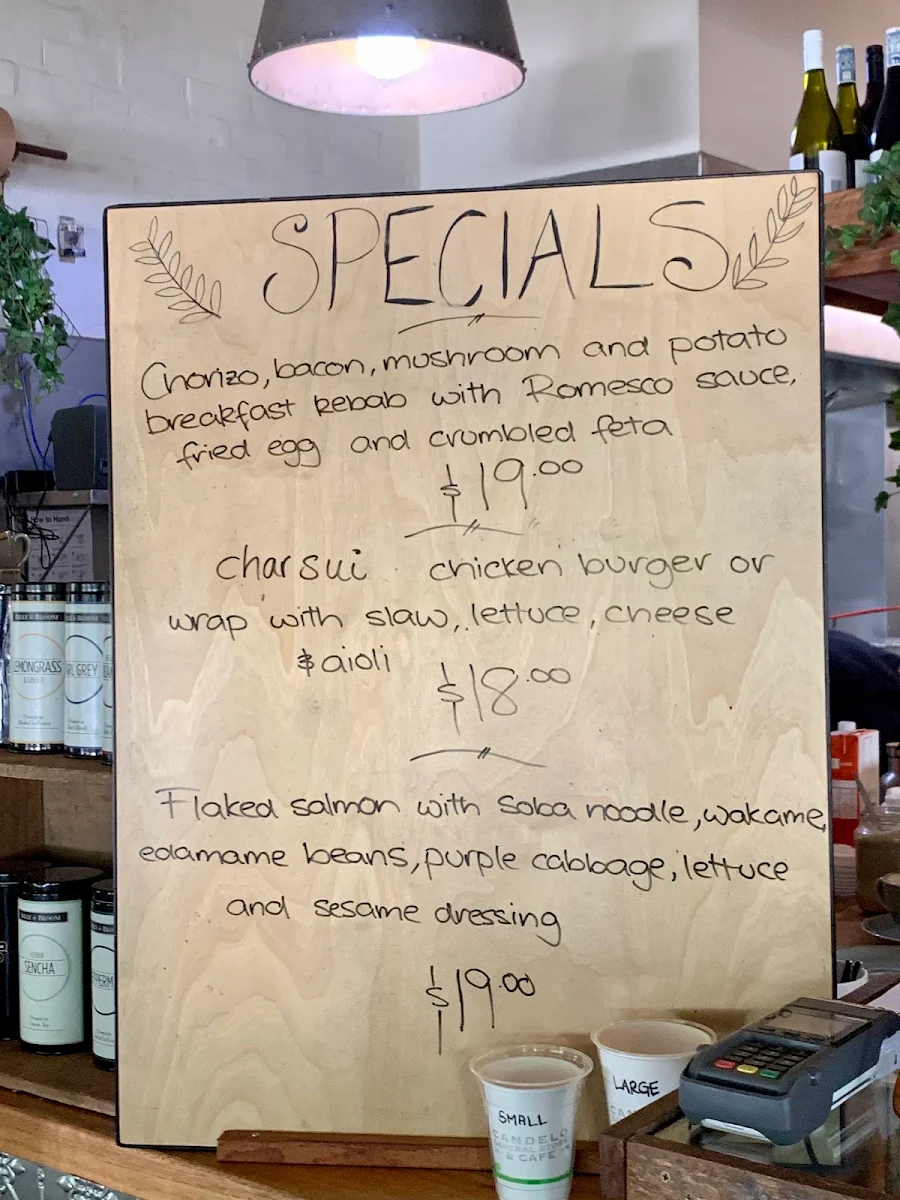 SPECIALS
Chorizo, bacon, mushroom and potato
breakfast kebab with Romesco sauce,
fried egg and crumbled feta
$19.00
char sui chicken burger or
wrap with slaw, lettuce, cheese
& aioli $18.00
Flaked salmon with Soba noodle, wakame,
edamame beans, purple cabbage, lettuce
and sesame dressing
$19.00
How to Hand
LEMONGRASS
GREY
SENCHA
SMALL
CANDELO
GENERAL STORE
& CAFE
LARGE